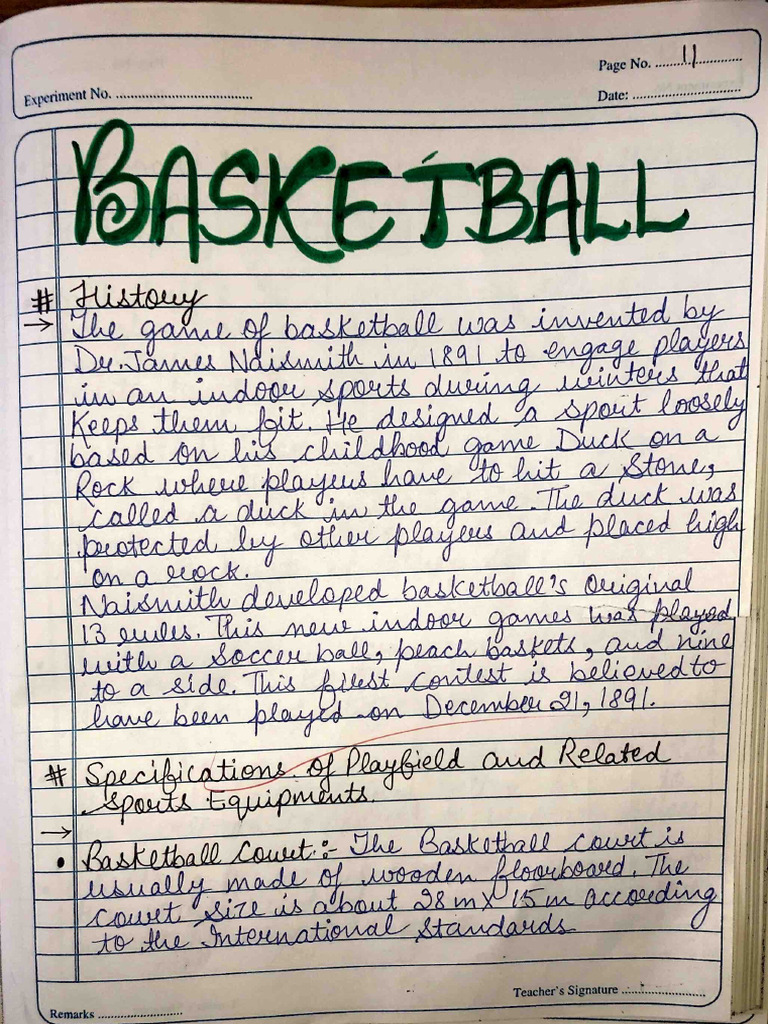 Page No. 11
Experiment No.
Date:
BASKETBALL
# History
→ The game of basketball was invented by
Dr. James Naismith in 1891 to engage players
in an indoor sports during winters that
Keeps them fit. He designed a sport loosely
based on his childhood game Duck on a
Rock where players have to hit a Stone,
called a duck in the game. The duck was
protected by other players and placed high
on a rock.
Naismith developed basketball's original
13 rules. This new indoor games was played
with a Soccer ball, peach baskets, and nine
to a side. This first contest is believed to
have been played on December 21, 1891.
# Specifications of Playfield and Related
Sports Equipments.
→
• Basketball Court:- The Basketball court is
usually made of wooden floorboard. The
court size is about 28 m X 15 m according
to the International Standards
Teacher's Signature
Remarks